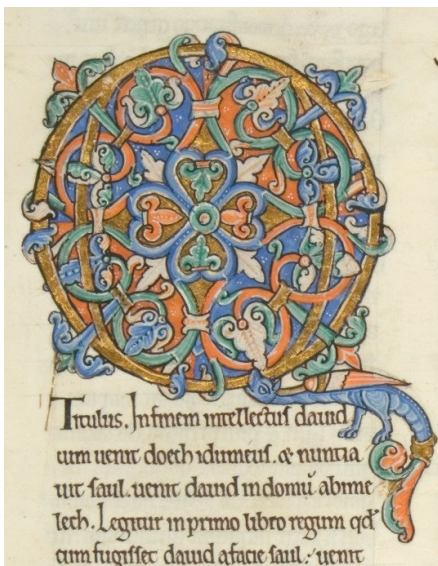 Q
Titulus. In finem intellectus dauid
cum uenit doech idumeus. & nuntia
uit saul. uenit dauid in domū abime
lech. Legitur in primo libro regum qd̕
cum fugisset dauid a facie saul: uenit